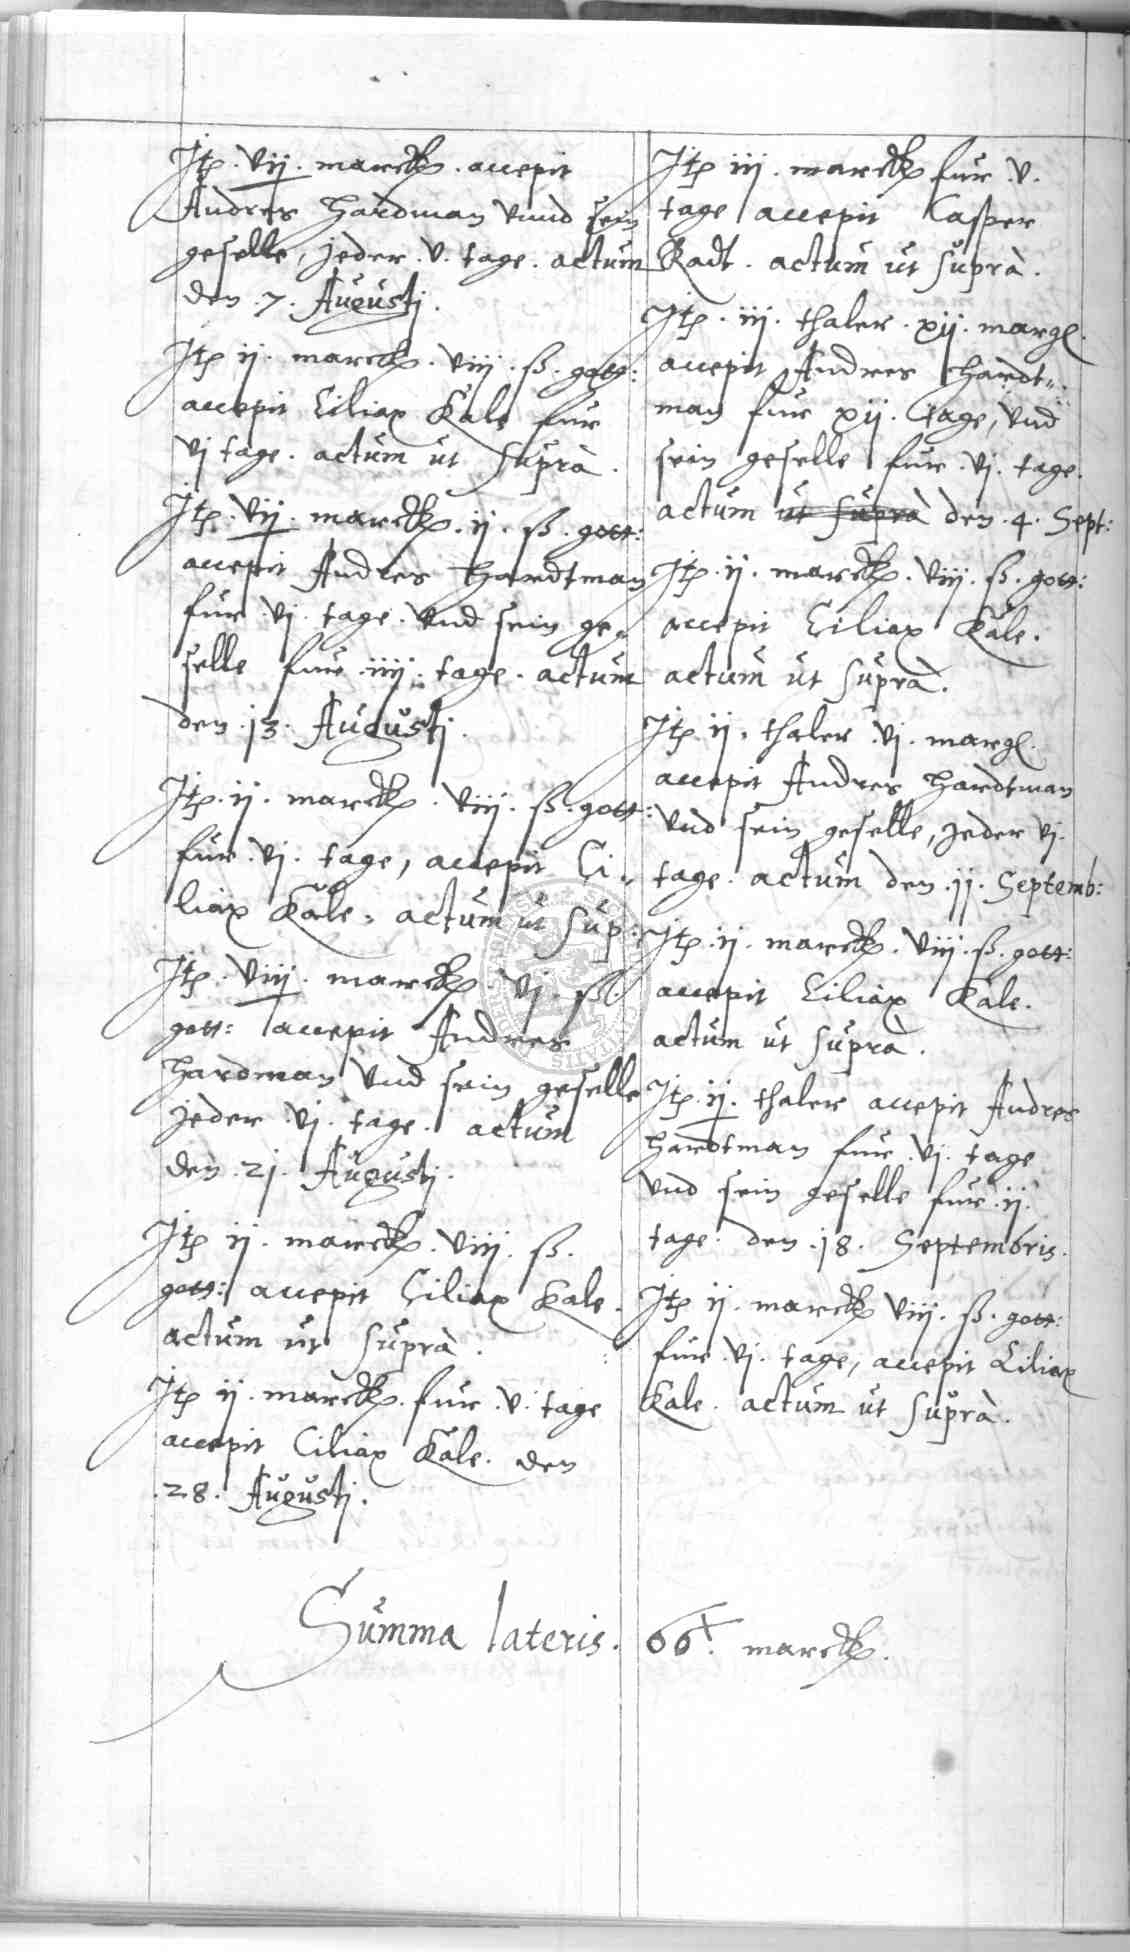 Itp. vij. marck. accepit
Andres Hardman vnnd sein
geselle, jeder .v. tage. actum
den .7. Augustj.
Itp ij. marck. viij. ß. gott:
accepit Ciliax Kale fur
vj tage. actum ut suprà.
Itp. vij. marck. ij. ß. gott:
accepit Andres Hardtman
fur .vj. tage. vnd sein ge„
selle fur .iiij. tage. actum
den .13. Augustj.
Itp. ij. marck. viij. ß. gott:
fur .vj. tage, accepit Ci„
liax Kale. actum ut sup:
Itp. viij. marck. vj. ß.
gott: accepit Andres
Hardman vnd sein geselle
jeder .vj. tage. actum
den .21. Augustj.
Itp ij. marck. viij. ß.
gott: accepit Ciliax Kale.
actum ut suprà.
Itp ij. marck. fur .v. tage
accepit Ciliax Kale. den
.28. Augustj.
Itp iij. marck fur .v.
tage accepit Casper
Radt. actum ut suprà.
Itp. iij. thaler. xij. margl.
accepit Andres Hardt„
man fur xij. tage, vnd
sein geselle fur .vj. tage.
actum ut suprà den .4. Sept:
Itp. ij. marck. viij. ß. gott:
accepit Ciliax Kale.
actum ut suprà.
Itp ij. thaler .vj. margl.
accepit Andres Hardtman
vnd sein geselle, jeder vj.
tage. actum den .11. Septemb:
Itp. ij. marck. viij. ß. gott:
accepit Ciliax Kale.
actum ut suprà.
Itp. ij. thaler accepit Andres
Hardtman fur .vj. tage
vnd sein geselle fur .ij.
tage. den .18. Septembris.
Itp ij. marck viij. ß. gott:
fur .vj. tage, accepit Ciliax
Kale. actum ut suprà.
Summa lateris. 66. marck.